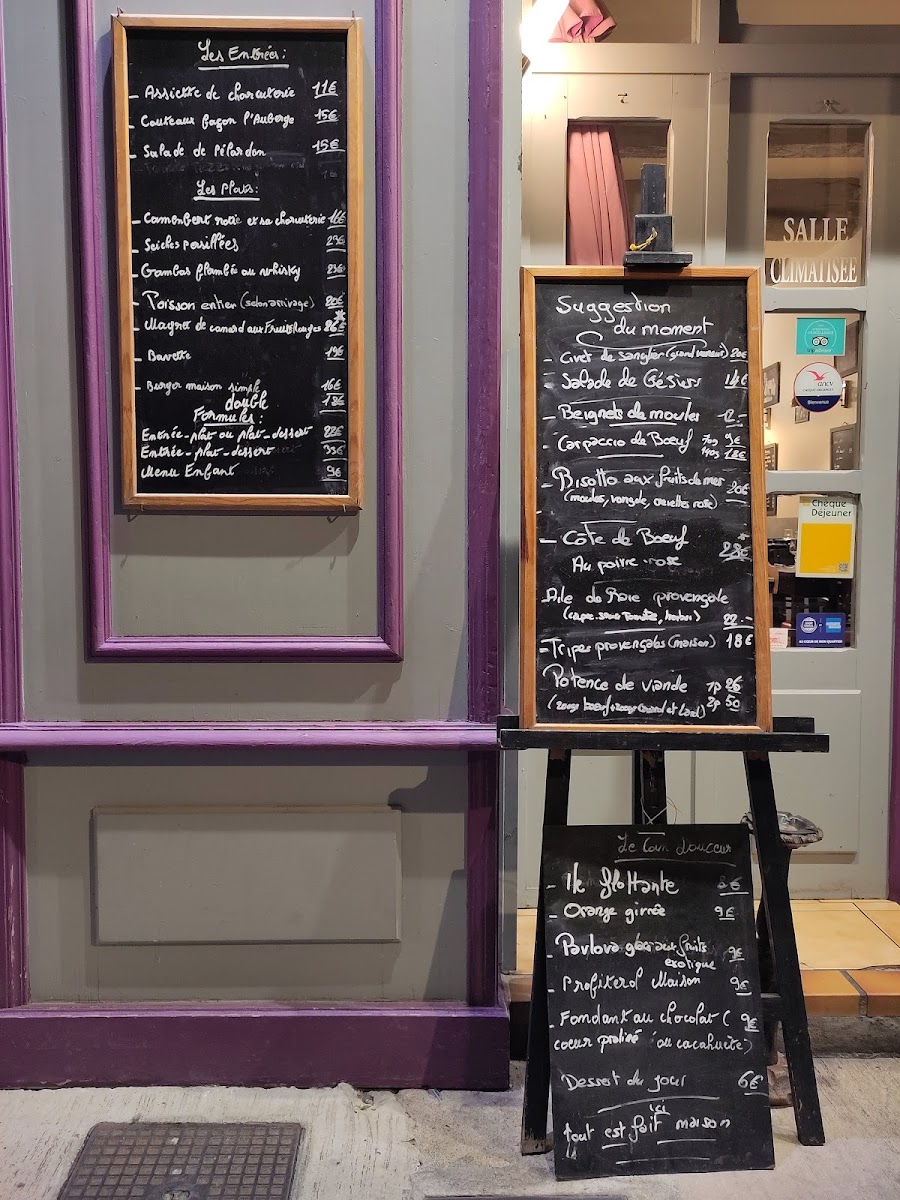 Les Entrées :
- Assiette de charcuterie 11€
- Couteaux façon l'Auberge 15€
- Salade de Pélardon 15€
Les Plats :
- Camembert rotie et sa charcuterie 16€
- Seiches persillées
- Gambas flambée au whisky
- Poisson entier (selon arrivage)
- Magret de canard aux Fruits Rouges
- Bavette 19€
- Burger maison simple 16€
double 18€
Formules :
Entrée - plat ou plat - dessert
Entrée - plat - dessert
Menu Enfant 9€
SALLE
CLIMATISÉE
ancv
Chèque
Déjeuner
AU CŒUR DE MON QUARTIER
Suggestion
du moment
- Civet de sanglier (grand veneur) 20€
- Salade de Gésiers 14€
- Beignets de moules 12.-
- Carpaccio de Bœuf 70g 9€
140g 18€
- Risotto aux fruits de mer 20€
(moules, vongole, crevettes rose)
- Côte de Bœuf
Au poivre rose
Aile de Raie provençale
22.-
- Tripes provençales (maison) 18€
Potence de viande 1p 26
2p 50
Le Coin douceur
- Ile flottante
- Orange givrée 9€
- Pavlova glacé aux fruits
exotique 9€
- Profiterol Maison 9€
- Fondant au chocolat ( 9€
coeur praliné ou cacahuete)
Dessert du jour 6€
ici
tout est fait maison